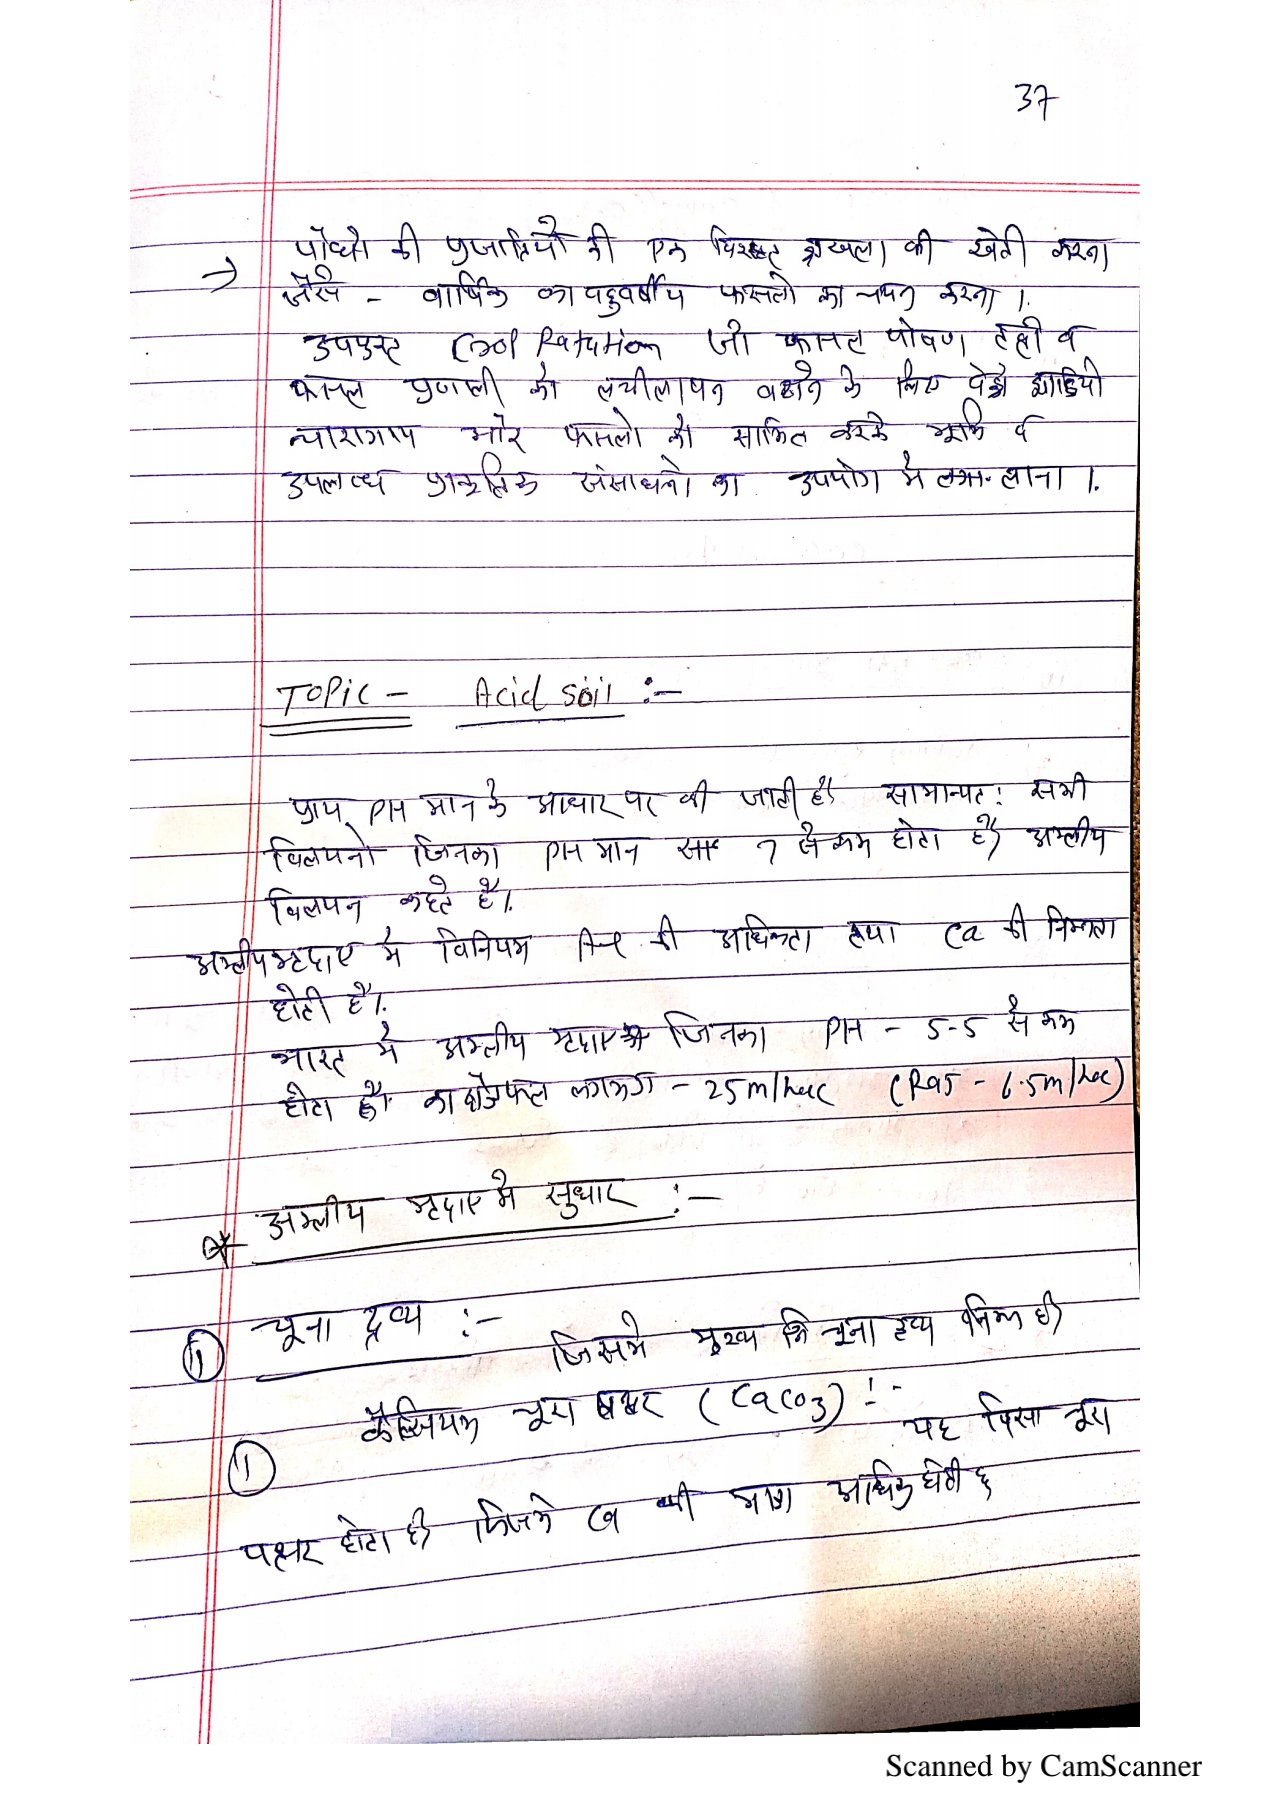 37
पौधो की प्रजातियो की एक विस्तृत श्रृंखला की खेती करना
→ जैसे - वार्षिक का बहुवर्षीय फसलो का चयन करना ।
उपयुक्त Crop Rotation जो फसल पोषण तत्वो व
फसल प्रणाली को लचीलापन बढाने के लिए पेडो झाडियो
चारागाह और फसलो को करके भूमि व
उपलब्ध प्राकृतिक संसाधनो का उपयोग मे लाना ।
Topic - Acid soil :-
प्राय PH मान के आधार पर की जाती है। सामान्यत: सभी
विलयनो जिनका PH मान 7 से कम होता है, अम्लीय
विलयन कहते है।
अम्लीय मृदाए मे विनिमय की अधिकता तथा Ca की निम्नता
होती है।
भारत मे अम्लीय मृदाए जिनका PH - 5.5 से कम
होता है। का क्षेत्रफल लगभग - 25 m/hec (Raj - 6.5m/hec)
* अम्लीय मृदाए मे सुधार :-
(1) चूना द्रव्य :-
जिसमे मुख्य चूना द्रव्य निम्न है।
(11) कैल्सियम चूना पत्थर (CaCO3) :-
यह पिसा चूना
पत्थर होता है। जिसमे Ca की मात्रा अधिक होती है
Scanned by CamScanner